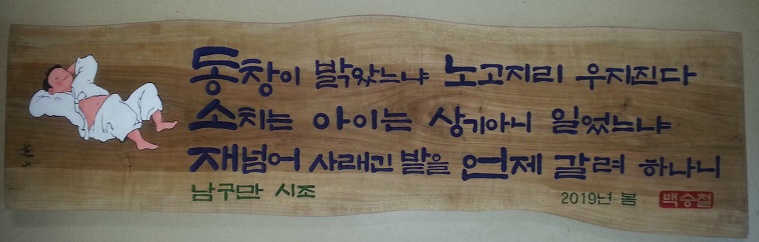 동창이 밝았느냐 노고지리 우지진다
소치는 아이는 상기아니 일었느냐
재넘어 사래긴 밭을 언제 갈려 하나니
남구만 시조
2019년 봄 백승철